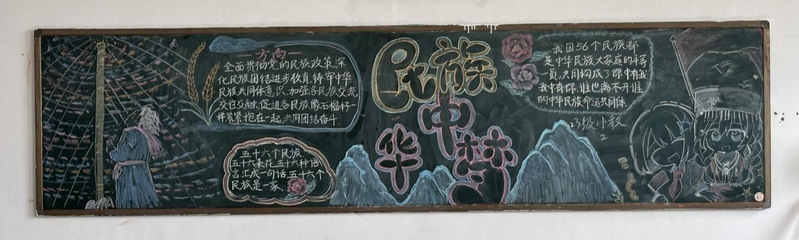 方向
全面贯彻党的民族政策,深
化民族团结进步教育,铸牢中华
民族共同体意识,加强各民族交流
交往交融,促进各民族像石榴籽一
样紧紧抱在一起,共同团结奋斗
五十六个民族
五十六朵花,五十六种话
言汇成一句话,五十六个
民族是一家、
民族
中
华
梦
我国56个民族都
是中华民族大家庭的平等
一员,共同构成了你中有我
我中有你,谁也离不开谁
的中华民族命运共同体
小教
2